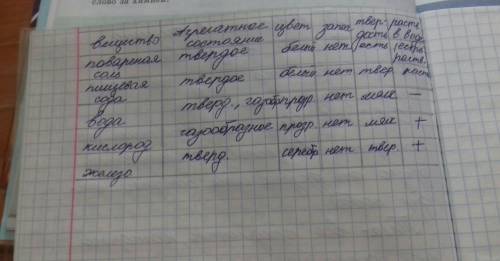 слово за химией.
вещество Агрегатное состояние цвет запах твердость раств. в воде
поваренная соль твердое белый нет есть раств.
пищевая сода твердое белый нет твер. раств
вода тверд., газообр нет мягк —
кислород газообразное прозр. нет мягк +
железо тверд. серебр нет твер. +